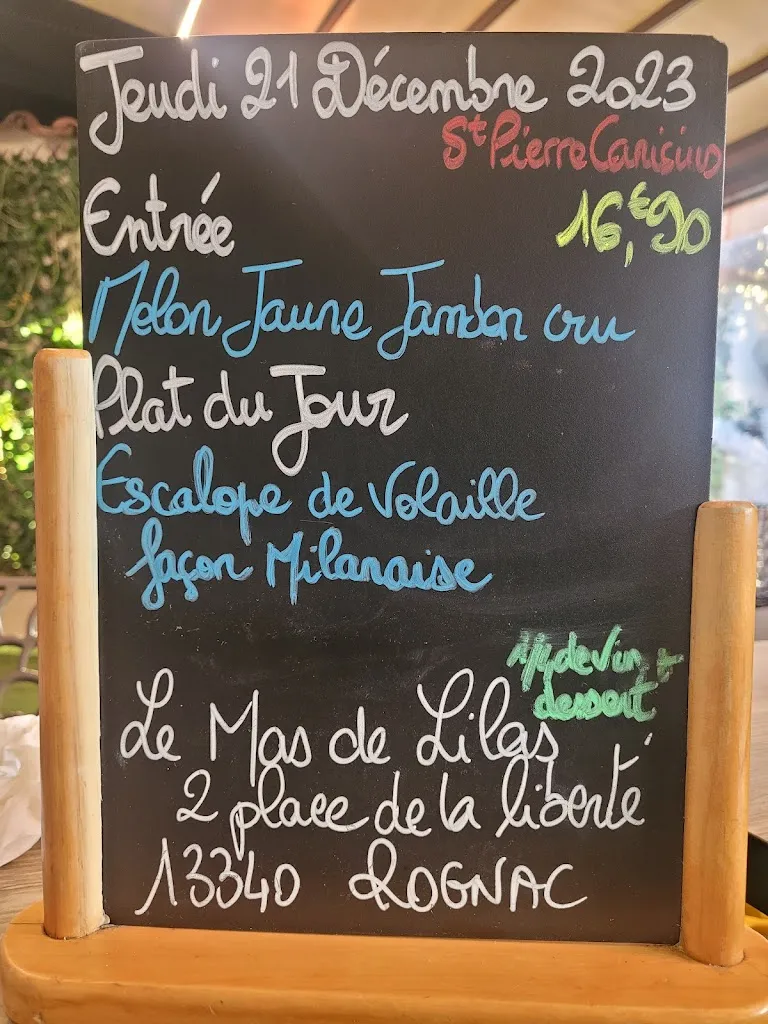 Jeudi 21 Décembre 2023
St Pierre Canisius
Entrée
16,€90
Melon Jaune Jambon cru
Plat du Jour
Escalope de Volaille
façon Milanaise
1/4 de Vin +
dessert
Le Mas de Lilas
2 place de la liberté
13340 ROGNAC